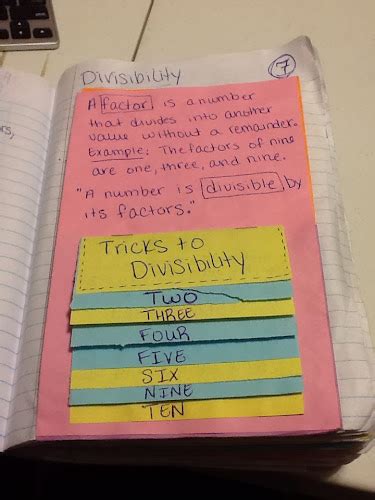 Divisibility
7
A factor is a number
that divides into another
value without a remainder.
Example: The factors of nine
are one, three, and nine.
"A number is divisible by
its factors."
Tricks to
Divisibility
TWO
THREE
FOUR
FIVE
SIX
NINE
TEN